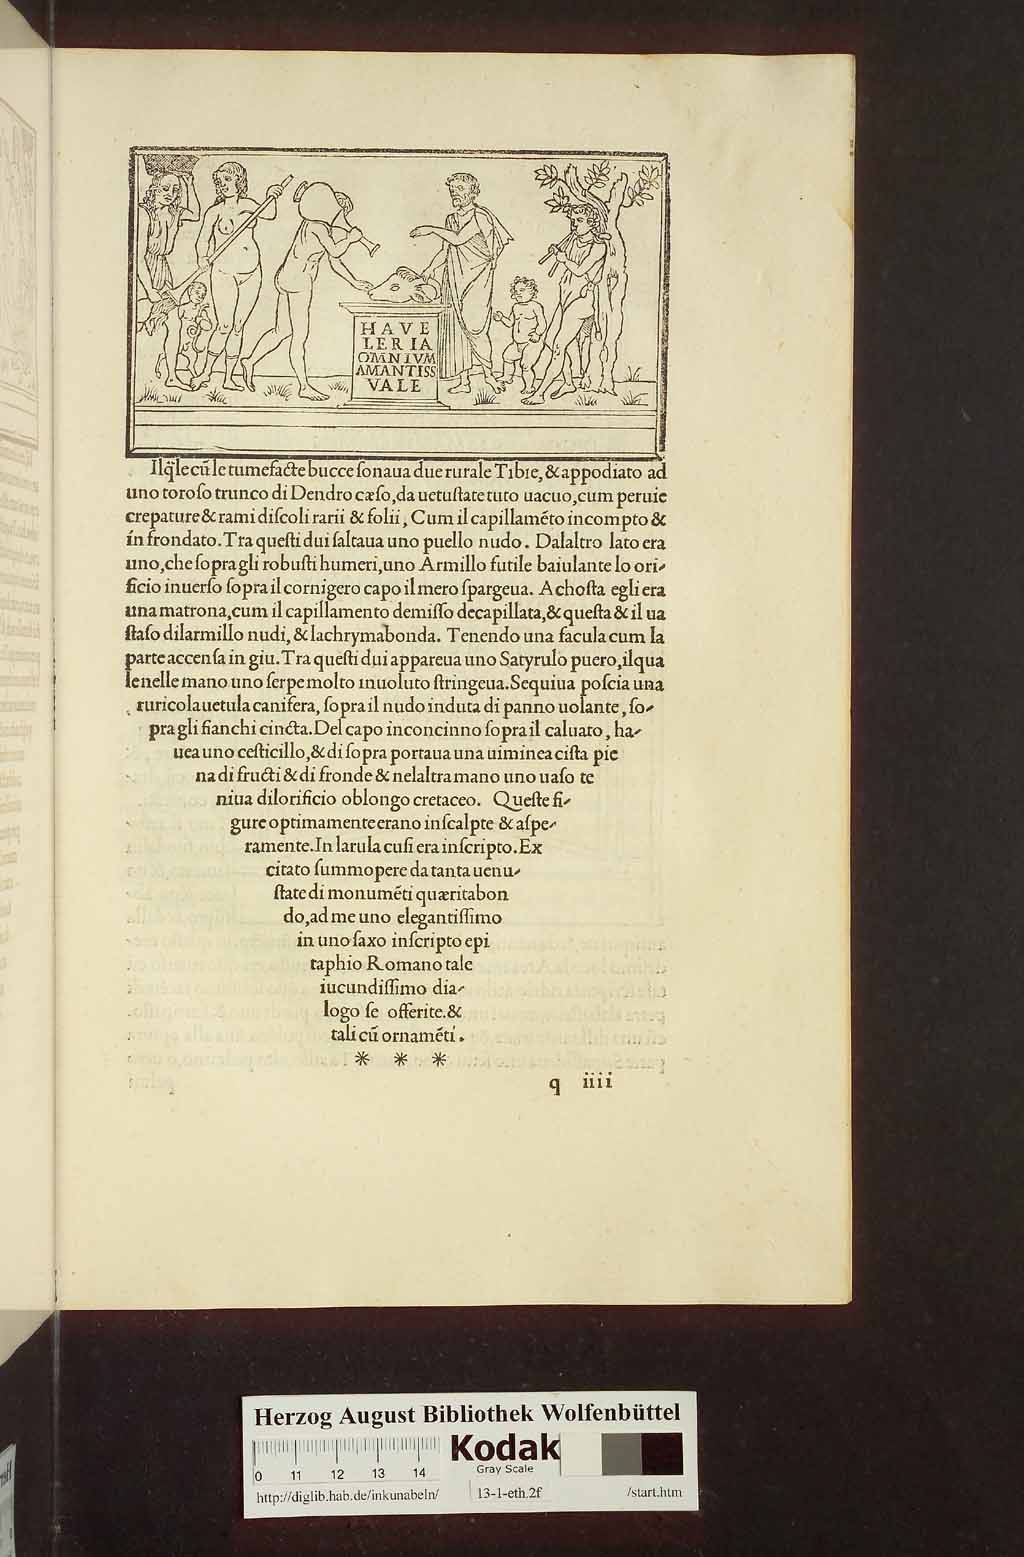 HAVE
LERIA
OMNIVM
AMANTISS
VALE
Ilq̃le cũ le tumefacte bucce ſonaua due rurale Tibie, & appodiato ad
uno toroſo trunco di Dendro cæſo, da uetuſtate tuto uacuo, cum peruie
crepature & rami diſcoli rarii & folii, Cum il capillamẽto incompto &
in frondato. Tra queſti dui ſaltaua uno puello nudo. Dalaltro lato era
uno, che ſopra gli robuſti humeri, uno Armillo futile baiulante lo ori-
ficio inuerſo ſopra il cornigero capo il mero ſpargeua. A choſta egli era
una matrona, cum il capillamento demiſſo decapillata, & queſta & il ua
ſtaſo dilarmillo nudi, & lachrymabonda. Tenendo una facula cum la
parte accenſa in giu. Tra queſti dui appareua uno Satyrulo puero, ilqua
le nelle mano uno ſerpe molto inuoluto ſtringeua. Sequiua poſcia una
ruricola uetula canifera, ſopra il nudo induta di panno uolante, ſo-
pra gli fianchi cincta. Del capo inconcinno ſopra il caluato, ha-
uea uno ceſticillo, & di ſopra portaua una uiminea ciſta pie
na di fructi & di fronde & nelaltra mano uno uaſo te
niua dilorificio oblongo cretaceo. Queſte fi-
gure optimamente erano inſcalpte & aſpe-
ramente. In larula cuſi era inſcripto. Ex
citato ſummopere da tanta uenu-
ſtate di monumẽti quæritabon
do, ad me uno elegantiſſimo
in uno ſaxo inſcripto epi
taphio Romano tale
iucundiſſimo dia-
logo ſe offerite. &
tali cũ ornamẽti.
* * *
q iiii
Herzog August Bibliothek Wolfenbüttel
Kodak
Gray Scale
0 11 12 13 14
http://diglib.hab.de/inkunabeln/ 13-1-eth.2f /start.htm